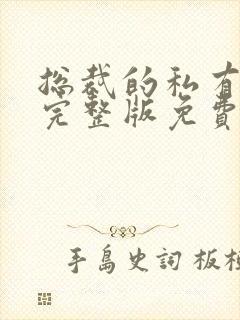 总裁的私有
完整版免费
手岛史词 板桓